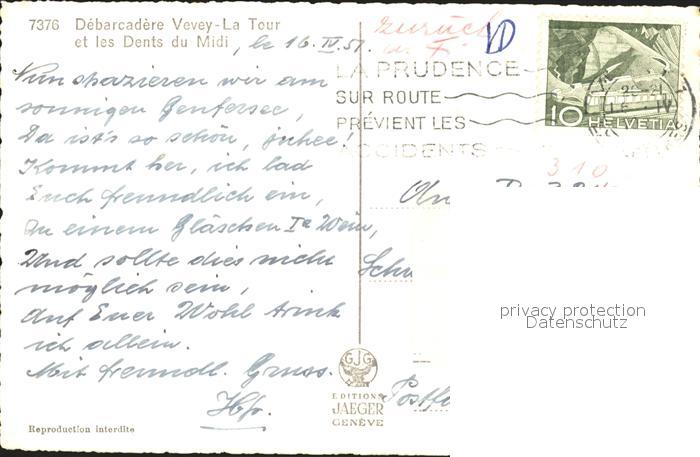 7376 Débarcadère Vevey-La Tour
et les Dents du Midi, le 16. IV. 51.
Nun spazieren wir am
sonnigen Genfersee,
Da ist's so schön, juhee!
Kommt her, ich lad
Euch freundlich ein,
zu einem Gläschen Ia Wein,
Und sollte dies nicht
möglich sein,
auf Euer Wohl trink
ich allein.
Mit freundl. Gruss.
Reproduction interdite
zurück
LA PRUDENCE
SUR ROUTE
PRÉVIENT LES
ACCIDENTS
10 HELVETIA
310
An
Schw
Postf
GJG
EDITIONS
JAEGER
GENÈVE
privacy protection
Datenschutz